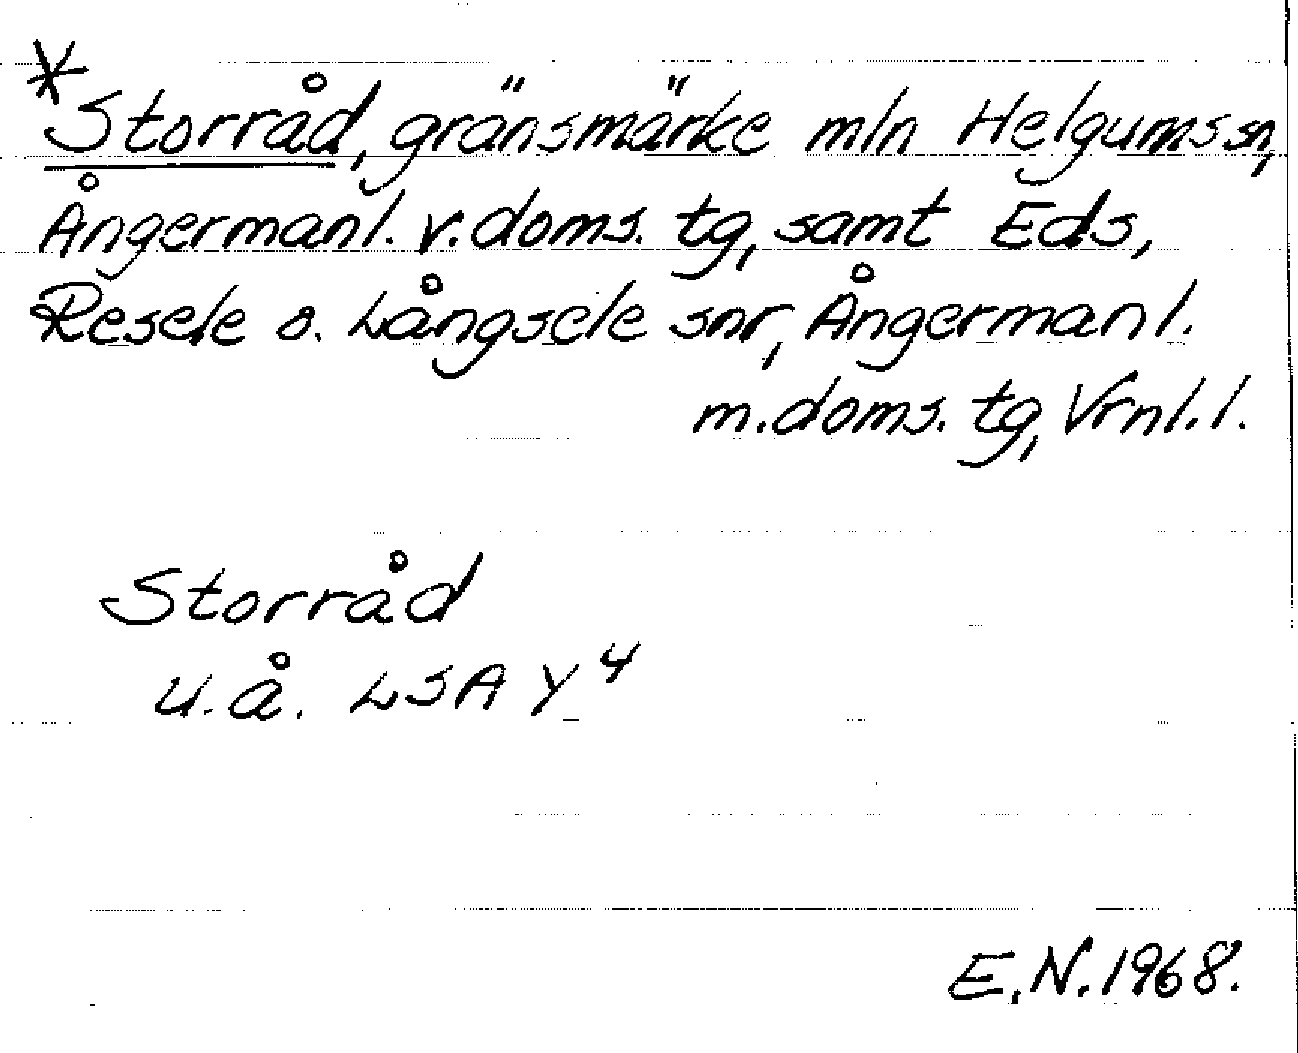 *Storråd, gränsmärke mln Helgums sn,
Ångermanl. v. doms. tg, samt Eds,
Resele o. Långsele snr, Ångermanl.
m. doms. tg, Vrnl. l.
Storråd
u.å. LSA Y 4
E.N. 1968.